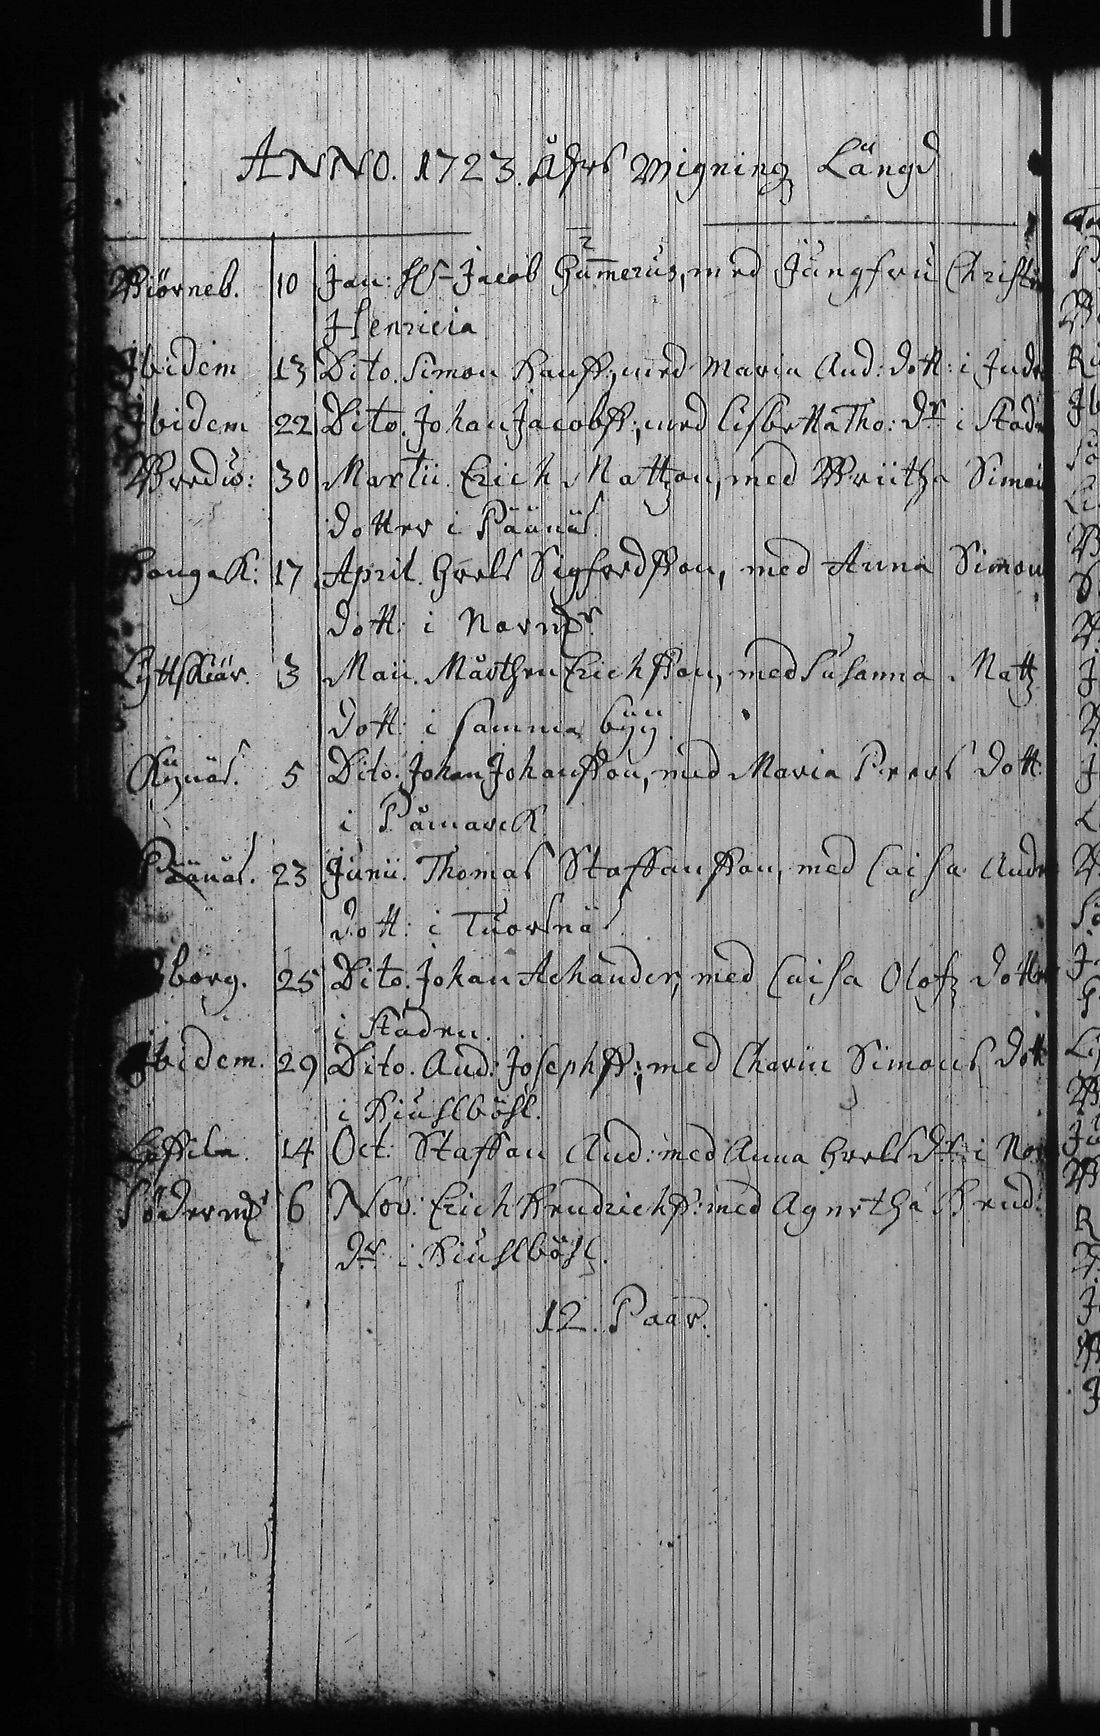 ANNO. 1723. Åhrs Wigning Längd
Biörneb. 10 Jan: Hr Jacob Gum̄erus, med Jungfru Christin
Henricia
Ibidem 13 Dito. Simon Hanss: med Maria And: dott: i Inde
Ibidem 22 Dito. Johan Jacobss; med Lisbetta Tho: dr i Stade
Bredw: 30 Martii. Erich Mattzon, med Briitha Simon
dotter i Päänäs
Hongak: 17 April. Grels Sigfredsson, med Anna Simon
dott: i Norrm.
Lyttskiär. 3 Maii. Mårthen Erichsson, med Susanna Matz
dott: i samma byÿ.
Kyÿnäs. 5 Dito. Johan Johansson, med Maria Peers dott:
i Påmarck
Päänäs. 23 Junii. Thomas Staffansson, med Caisa Andr
dott: i Tuorsnäs
borg. 25 Dito. Johan Achander, med Caisa Olofz dotter
i Staden.
Ibidem. 29 Dito. And: Josephss; med Charin Simons dott
i Kiuhlböhl.
14 Oct: Staffan And: med Anna Grels dr: i Nor
Söderm 6 Nov: Erich Hendrichss: med Agnetha Hend:
dr i Kiuhlböhl.
12. Paar.